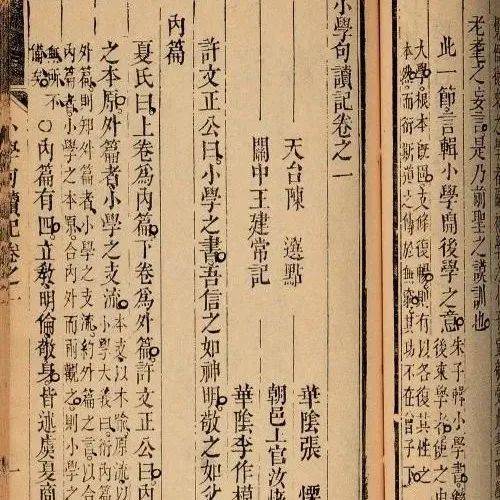 老耄之妄言是乃前聖之謨訓也
此一節言輯小學開後學之意
朱子輯小學書
後來學者使之由
大學根本既固支條復暢則有以各復其性之
本然而衍斯道之傳於無窮其功不在曾子下
小學句讀記卷之一
天台陳 選點
關中王建常記
華陰張
朝邑上官汝
華陰李作楨
許文正公曰小學之書吾信之如神明敬之如
內篇
夏氏曰上卷為內篇下卷為外篇許文正公曰
之本原外篇者小學之支流
本支以木喻原流以
小學大義曰衍內篇
外篇則知外篇者小學之支流約外篇之言以合
內篇者小學之本原合內外而兩觀之則小學之
無所不
備矣
○內篇有四立敎明倫敬身皆述虞夏商
小學句讀記卷之一
一